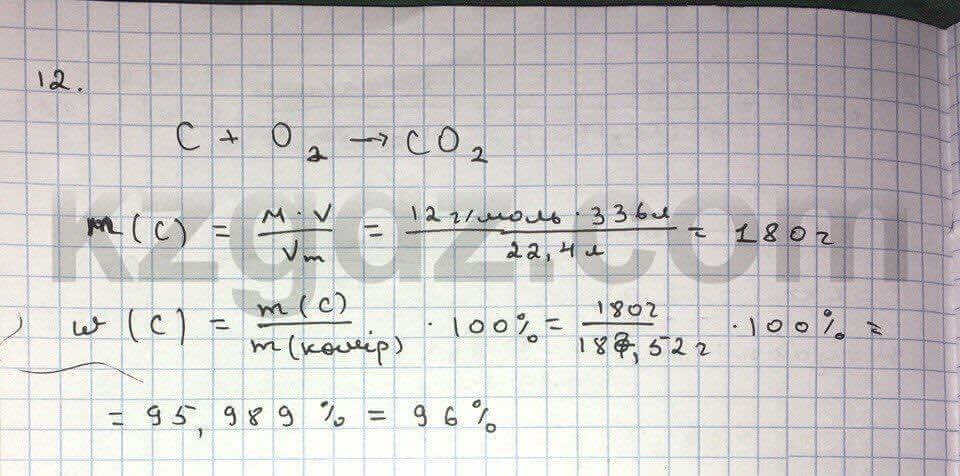 12.
C + O₂ → CO₂
m(C) = M · V / Vm = 12 г/моль · 336 л / 22,4 л = 180 г
ω(C) = m(C) / m(көмір) · 100% = 180 г / 187,52 г · 100% =
= 95,989 % = 96%
kzgdz.com